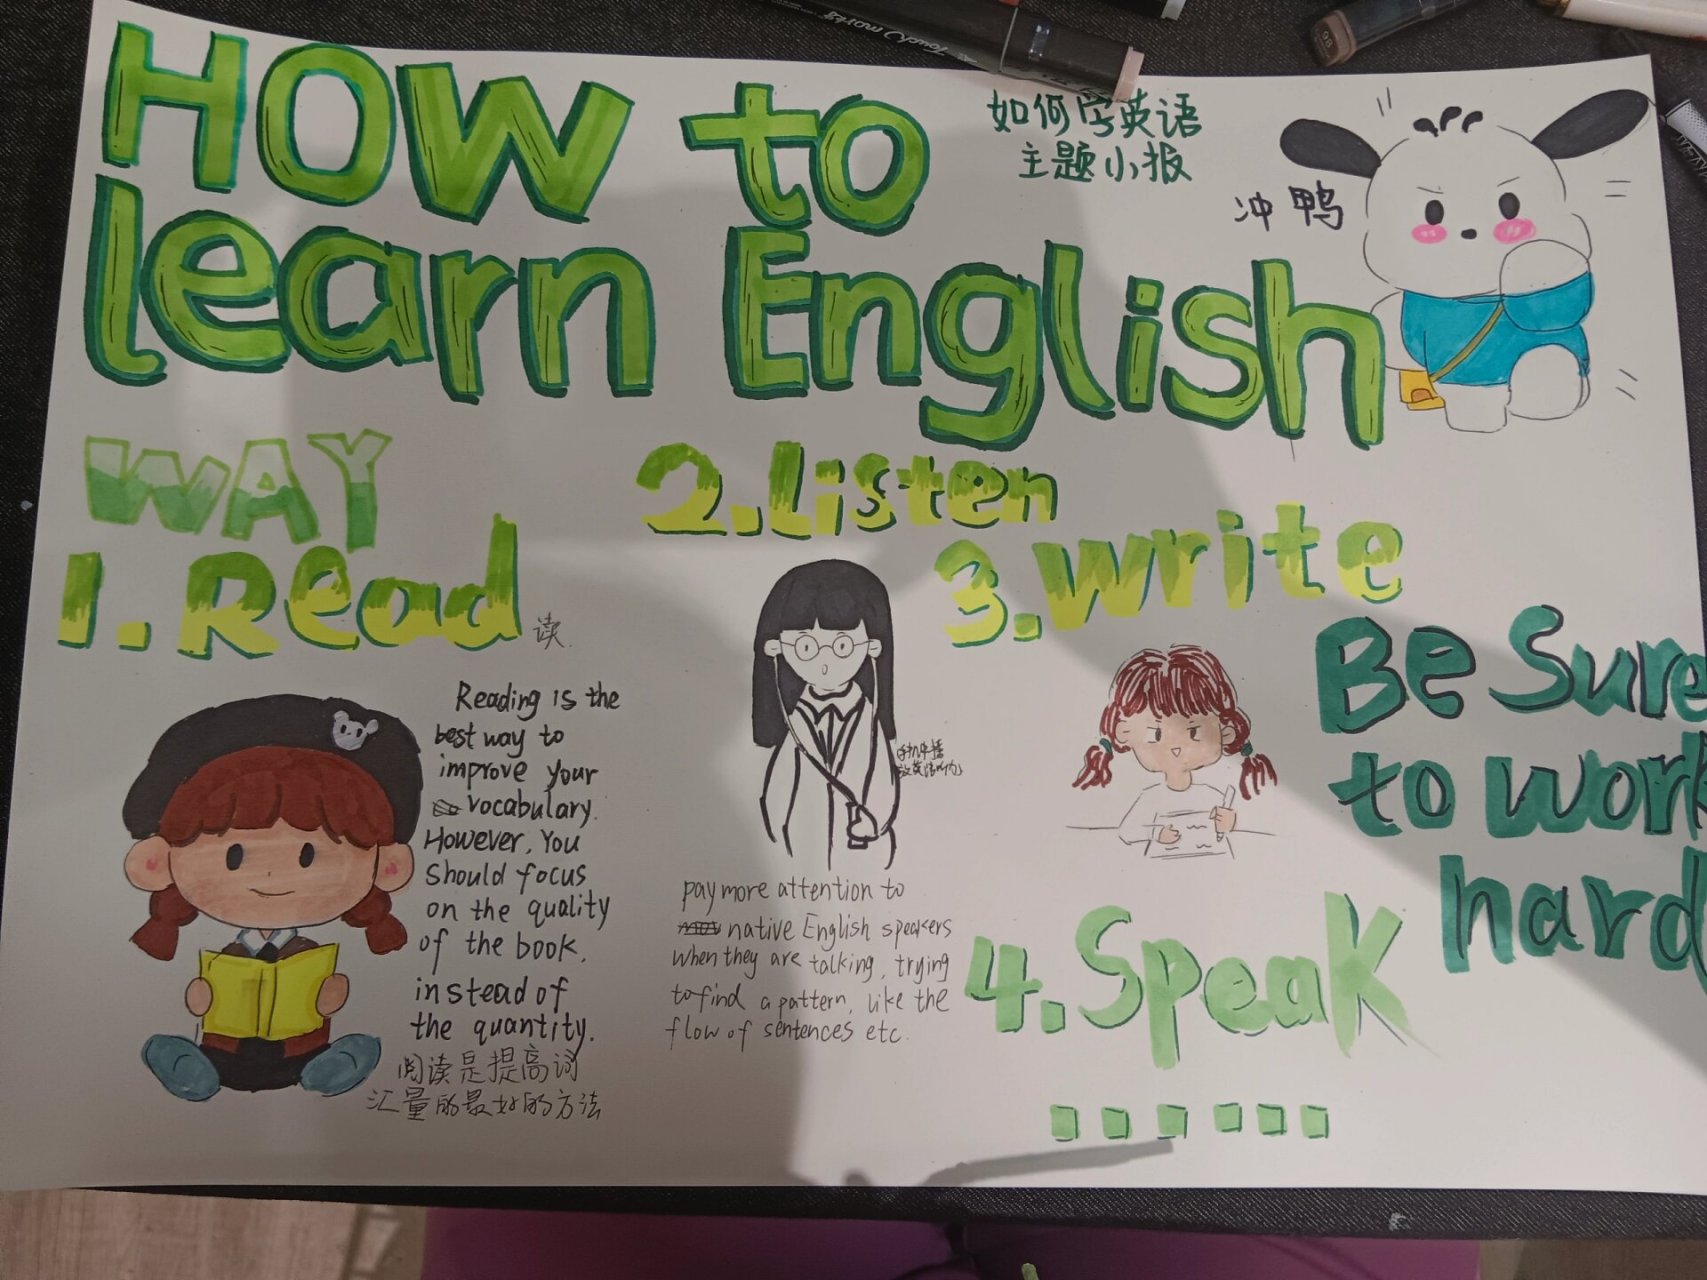 How to
learn English
如何学英语
主题小报
冲鸭
WAY
1. Read
读
Reading is the
best way to
improve your
vocabulary.
However, You
should focus
on the quality
of the book,
instead of
the quantity.
阅读是提高词
汇量的最好的方法
2. Listen
pay more attention to
native English speakers
when they are talking, trying
to find a pattern, like the
flow of sentences etc.
3. write
4. Speak
Be Sure
to work
hard
Touch
98